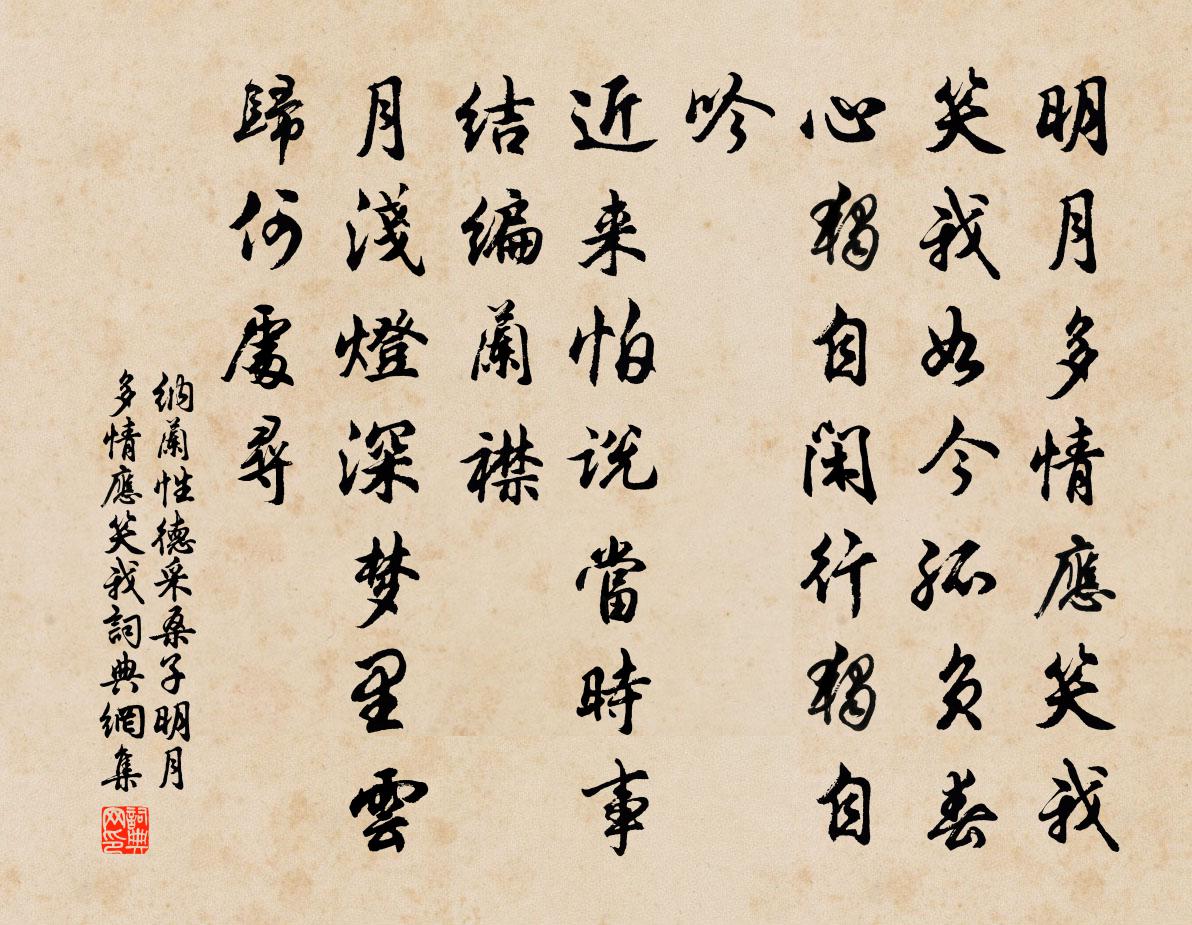 明月多情應笑我
笑我如今孤负春
心獨自闲行獨自
吟
近来怕说當時事
结编蘭襟
月淺燈深梦里雲
歸何處尋
纳蘭性德采桑子明月
多情應笑我詞典網集
詞典
网印